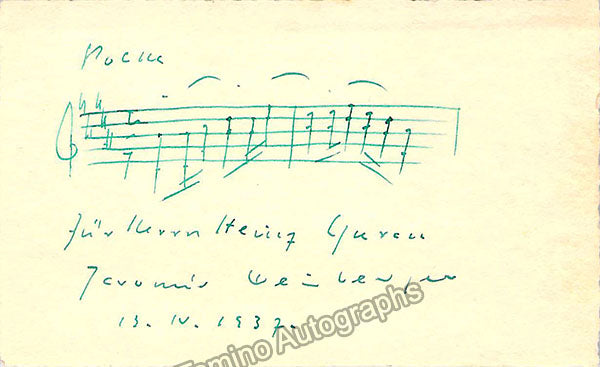 Polka
Für Herrn Heinz
Jaromir Weinberger
13. IV. 1937.
Tamino Autographs